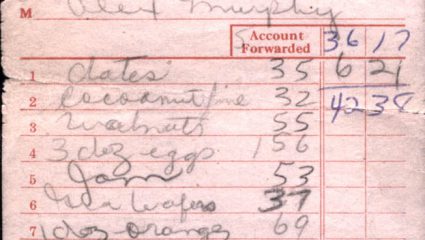 M Alex Murphy
Account Forwarded 36 17
1 dates 35 6 21
2 Cocoanut fine 32 42 38
3 walnuts 55
4 3 doz eggs 1 56
5 Jam 53
6 wafers 37
7 1 doz oranges 69